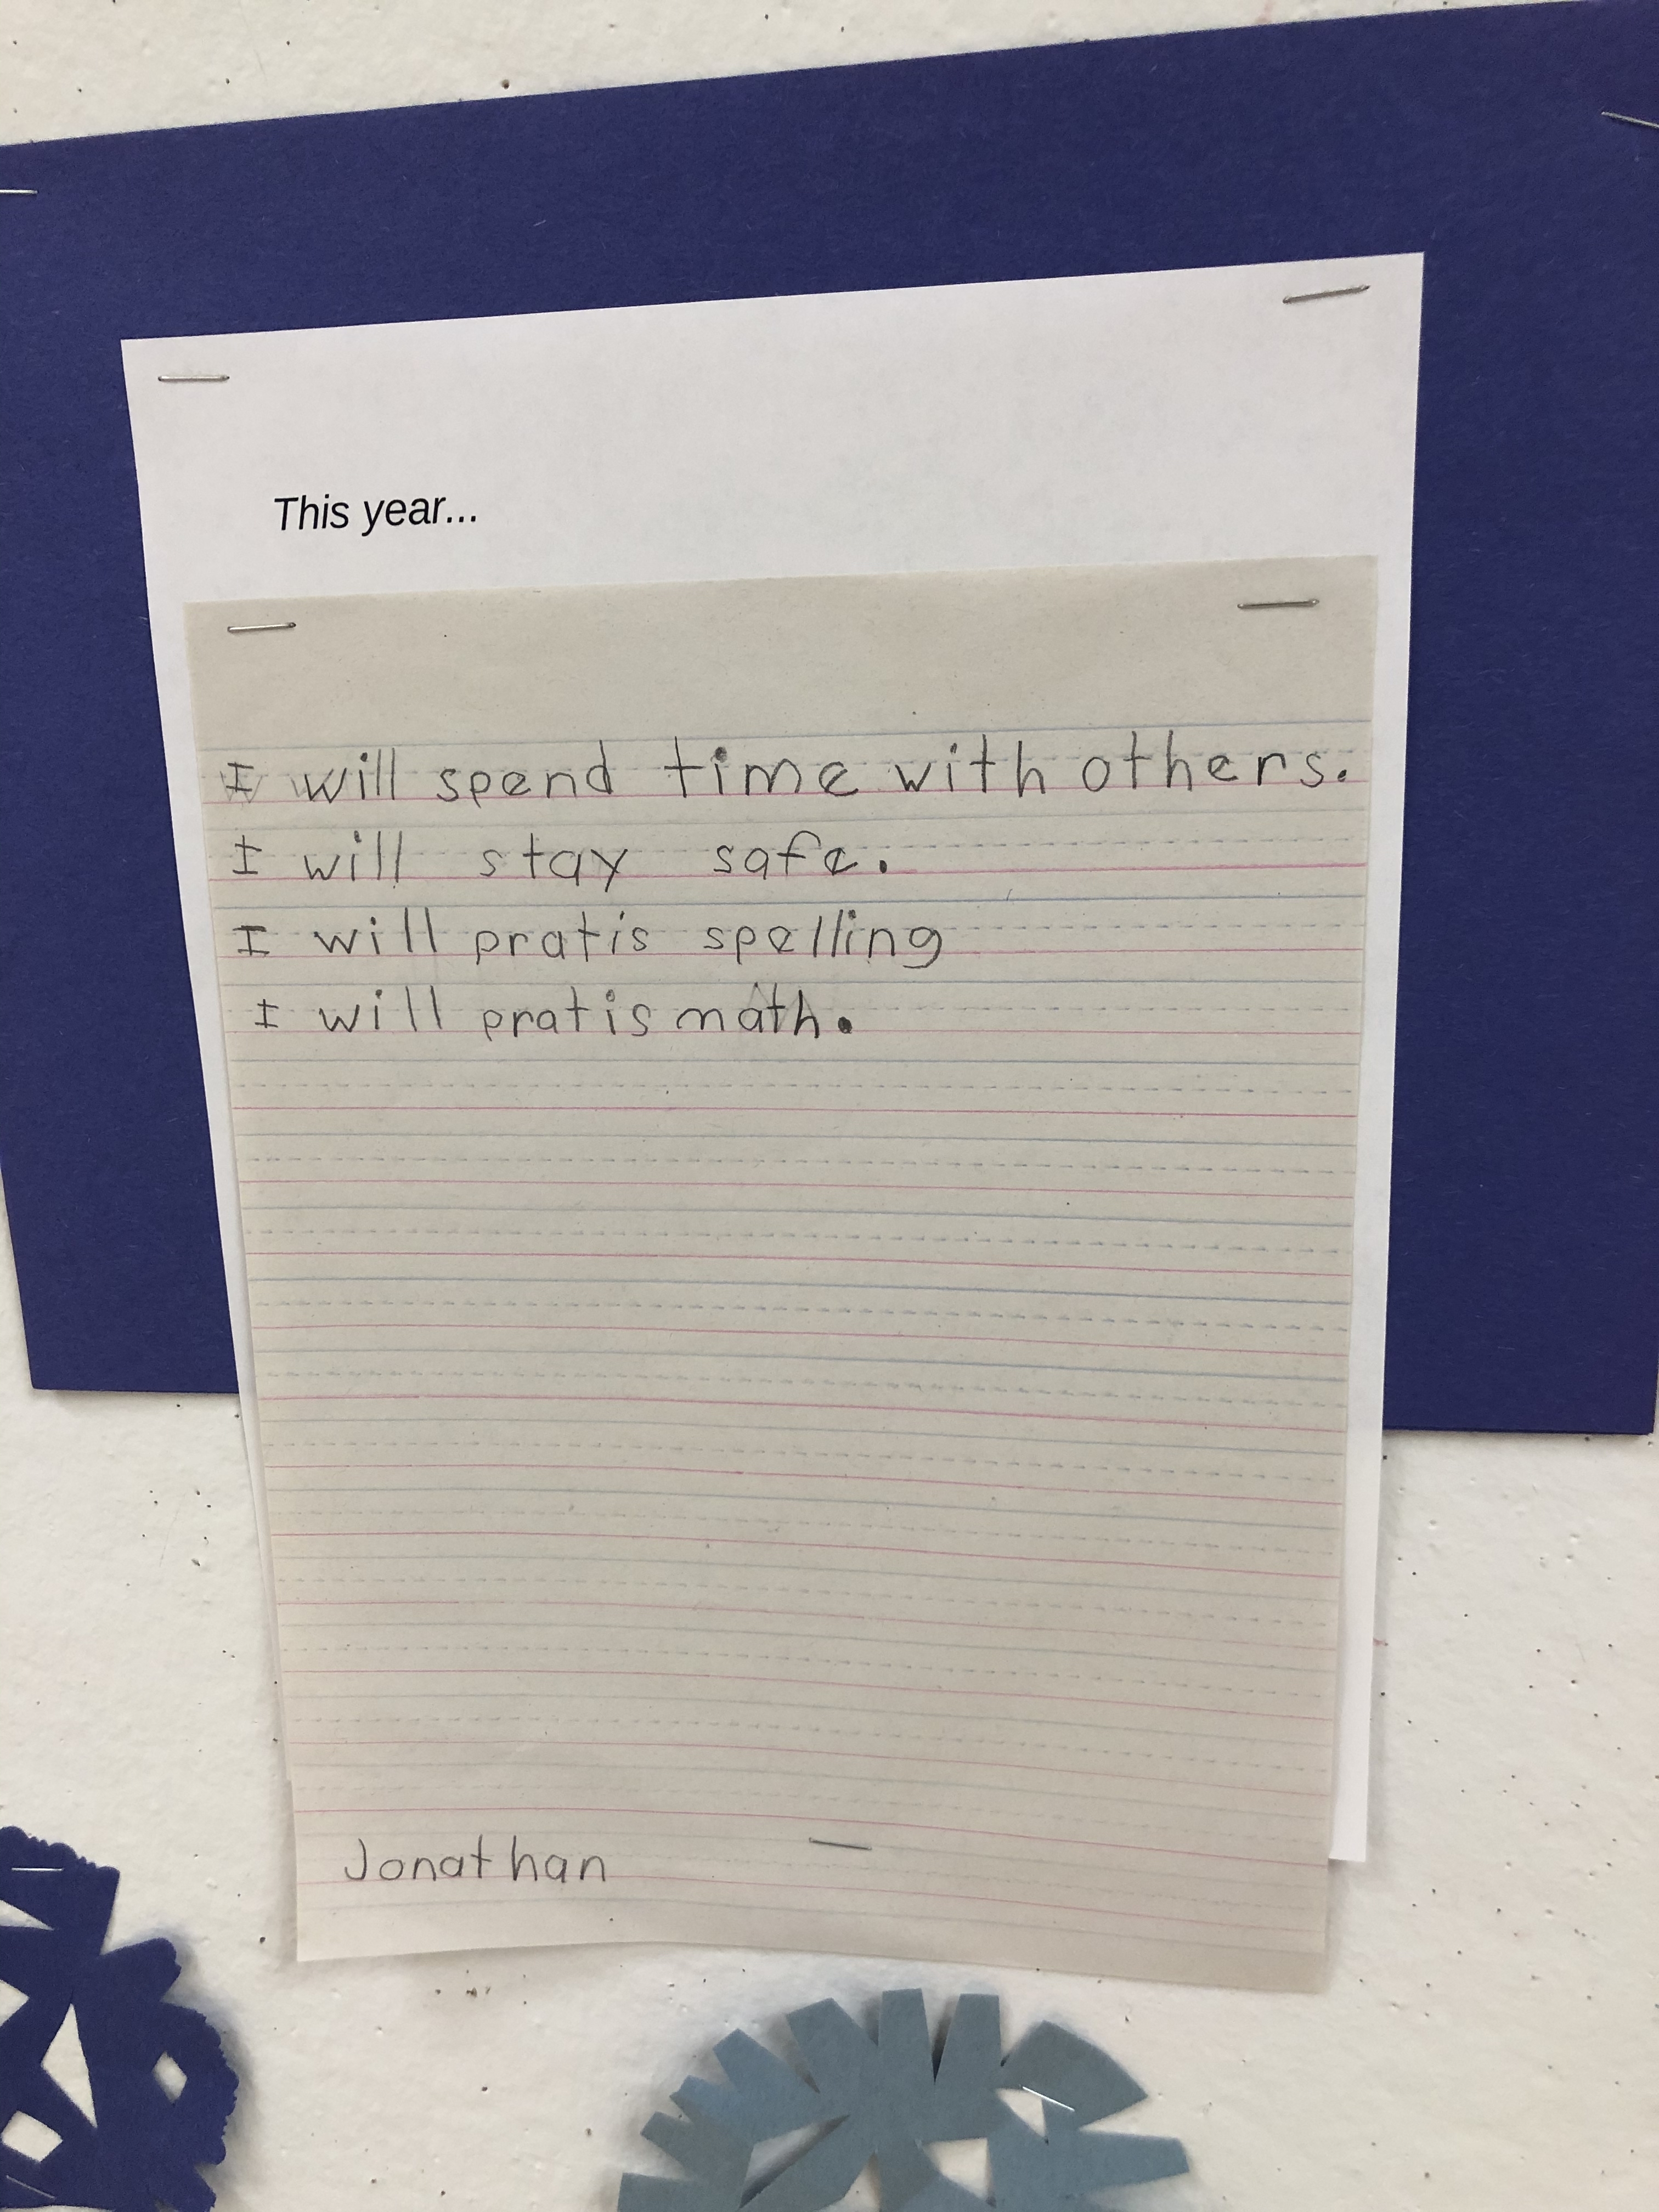 This year...
I will spend time with others.
I will stay safe.
I will pratis spelling
I will pratis math.
Jonathan